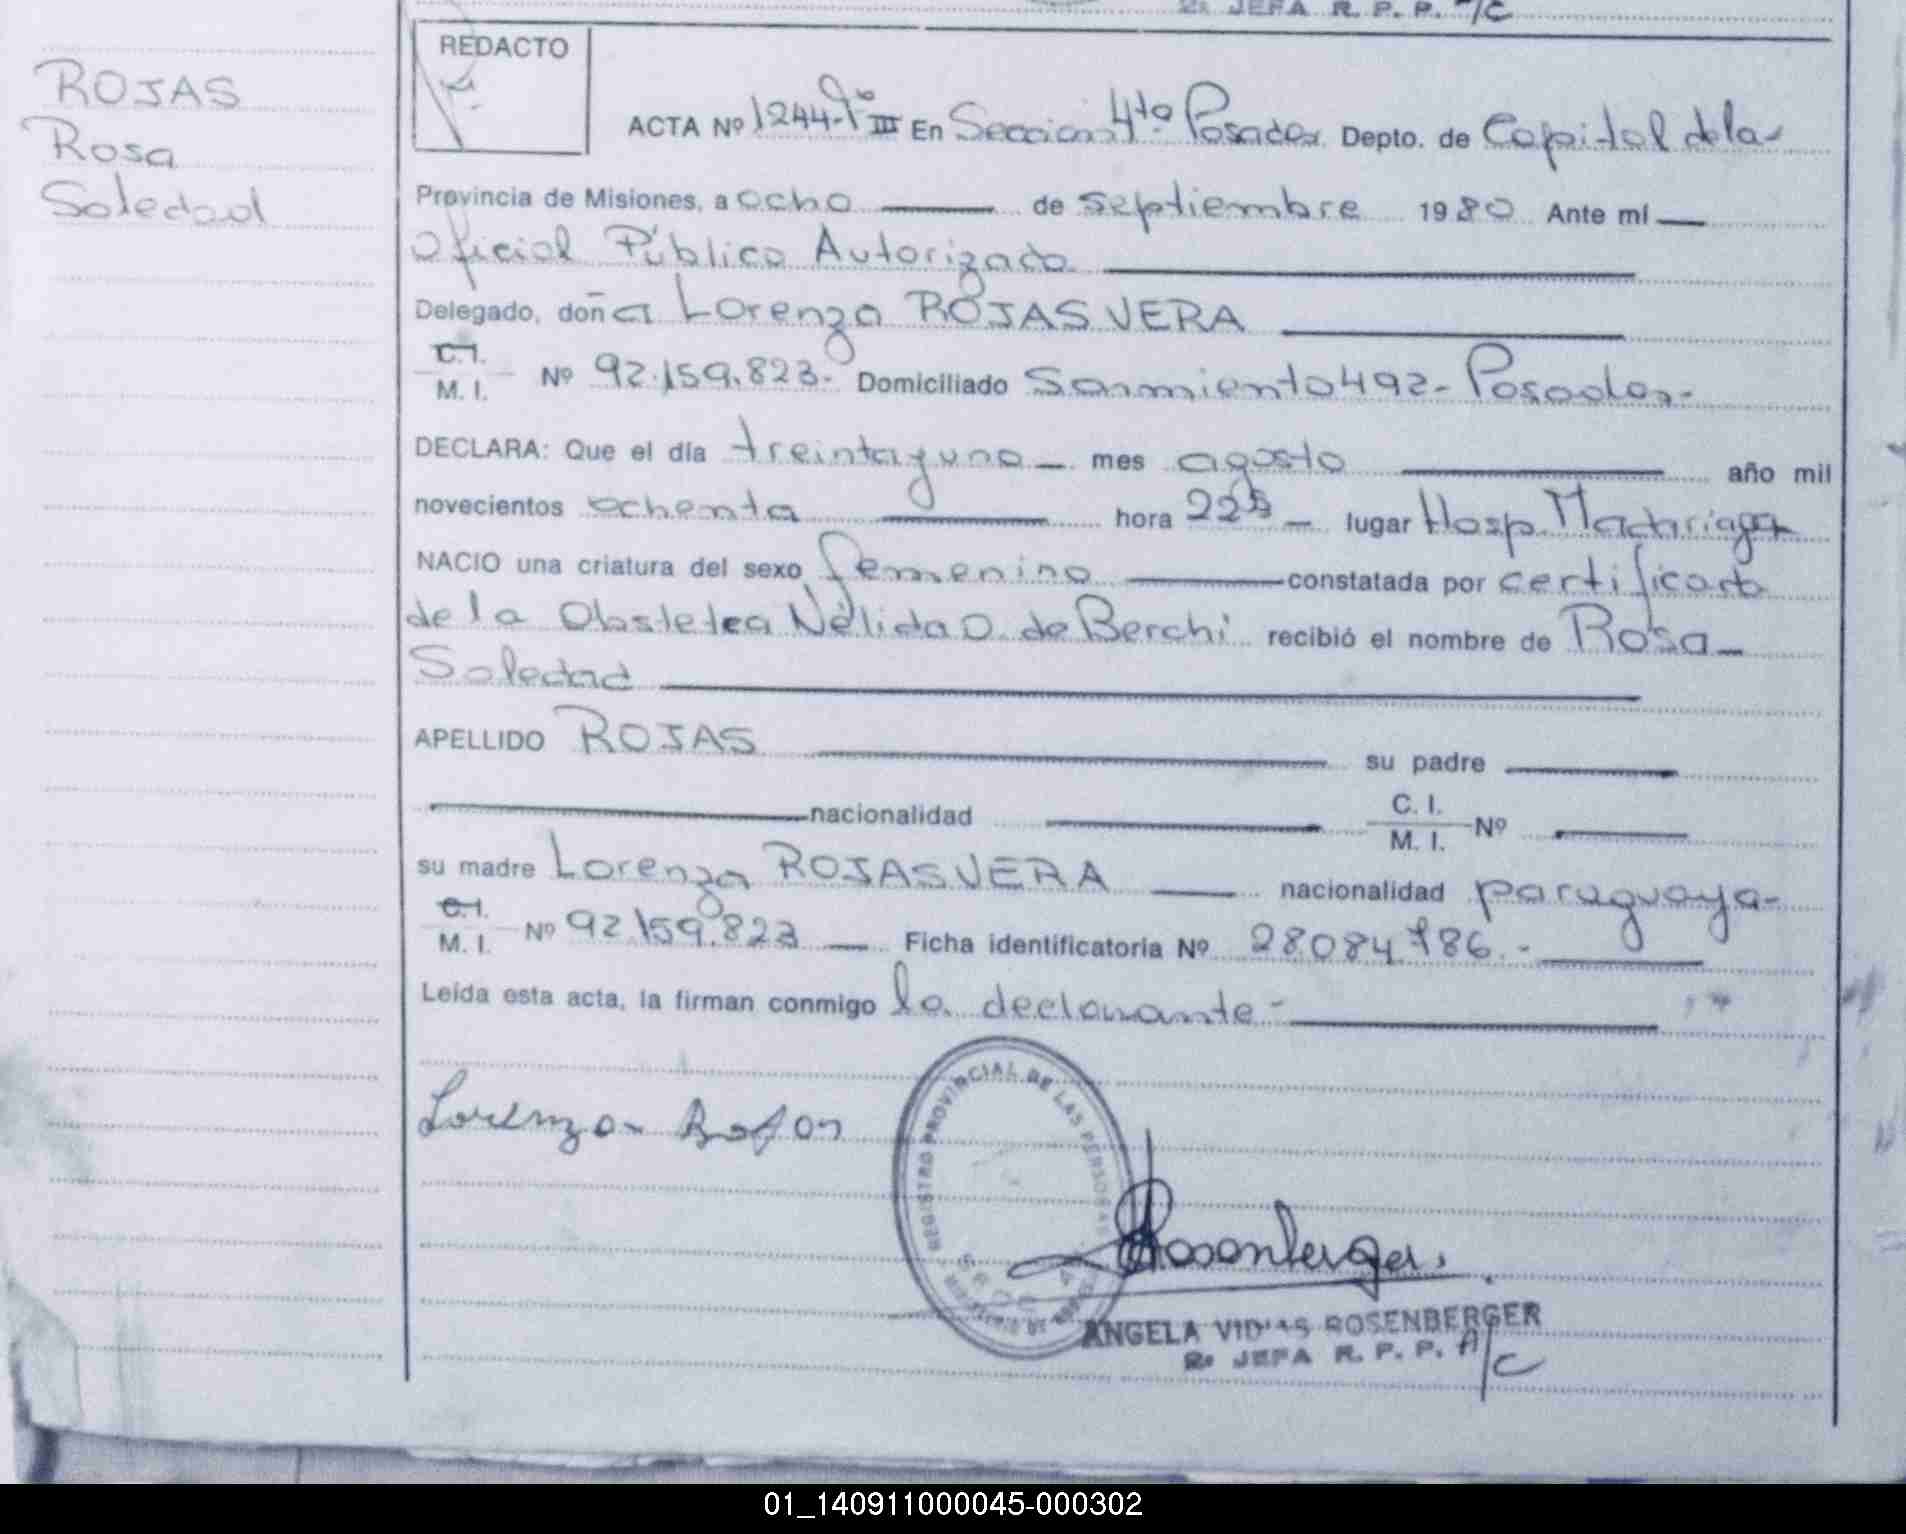 2º JEFA R. P. P. A/C
REDACTO
ROJAS
Rosa
Soledad
ACTA Nº 1244-Tº III En Seccion 4ta. Posadas Depto. de Capital de la
Provincia de Misiones, a ocho de septiembre 1980 Ante mí
Oficial Público Autorizado
Delegado, doña Lorenza ROJAS VERA
C.I.
M. I. Nº 92.159.823- Domiciliado Sarmiento 492- Posadas-
DECLARA: Que el día treinta y uno mes agosto año mil
novecientos ochenta hora 22 lugar Hosp. Madariaga
NACIO una criatura del sexo femenino constatada por certificado
de la Obstetra Nélida O. de Berchi recibió el nombre de Rosa
Soledad
APELLIDO ROJAS su padre
nacionalidad C. I.
M. I. Nº
su madre Lorenza ROJAS VERA nacionalidad paraguaya-
C.I.
M. I. Nº 92.159.823 Ficha identificatoria Nº 28.084.786.-
Leída esta acta, la firman conmigo la declarante-
Lorenza Rojas
REGISTRO PROVINCIAL DE LAS PERSONAS
Rosenberger.
ANGELA VIDMAS ROSENBERGER
2º JEFA R. P. P. A/C
01_140911000045-000302